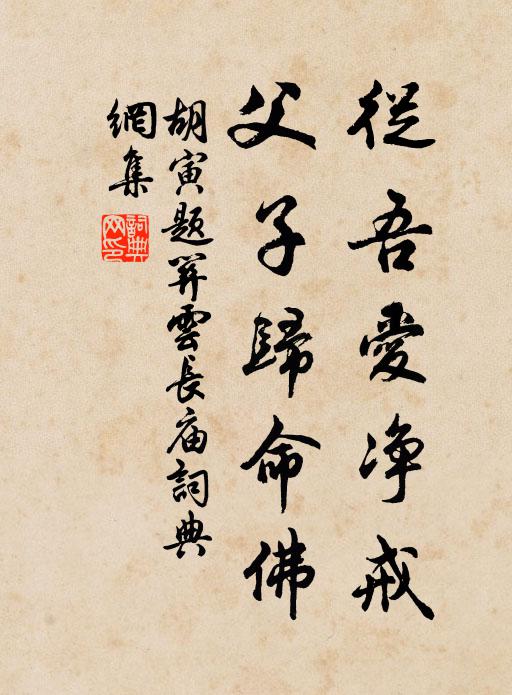 從吾愛净戒
父子歸命佛
胡寅題關雲長庙詞典
網集
詞典網印